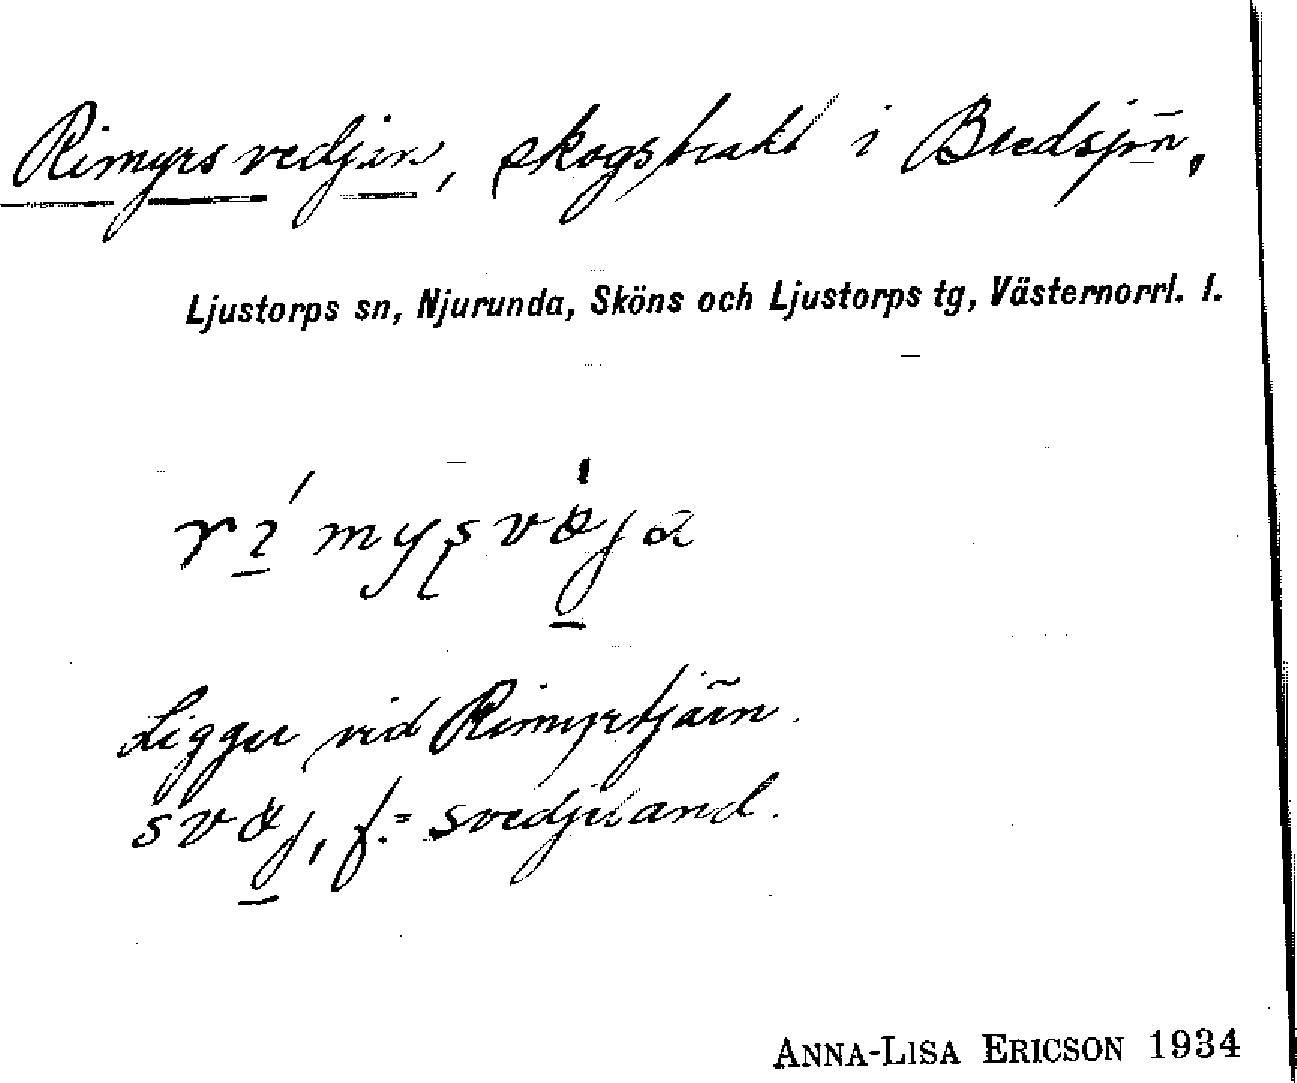 Rimyrsvedjan, skogstrakt i Bredsjön,
Ljustorps sn, Njurunda, Sköns och Ljustorps tg, Västernorrl. l.
Ligger vid Rimyrtjärn.
f. = svedjeland.
ANNA-LISA ERICSON 1934